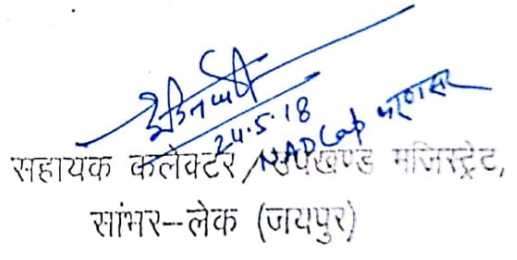 24.5.18
सहायक कलेक्टर/उपखण्ड मजिस्ट्रेट,
सांभर--लेक (जयपुर)